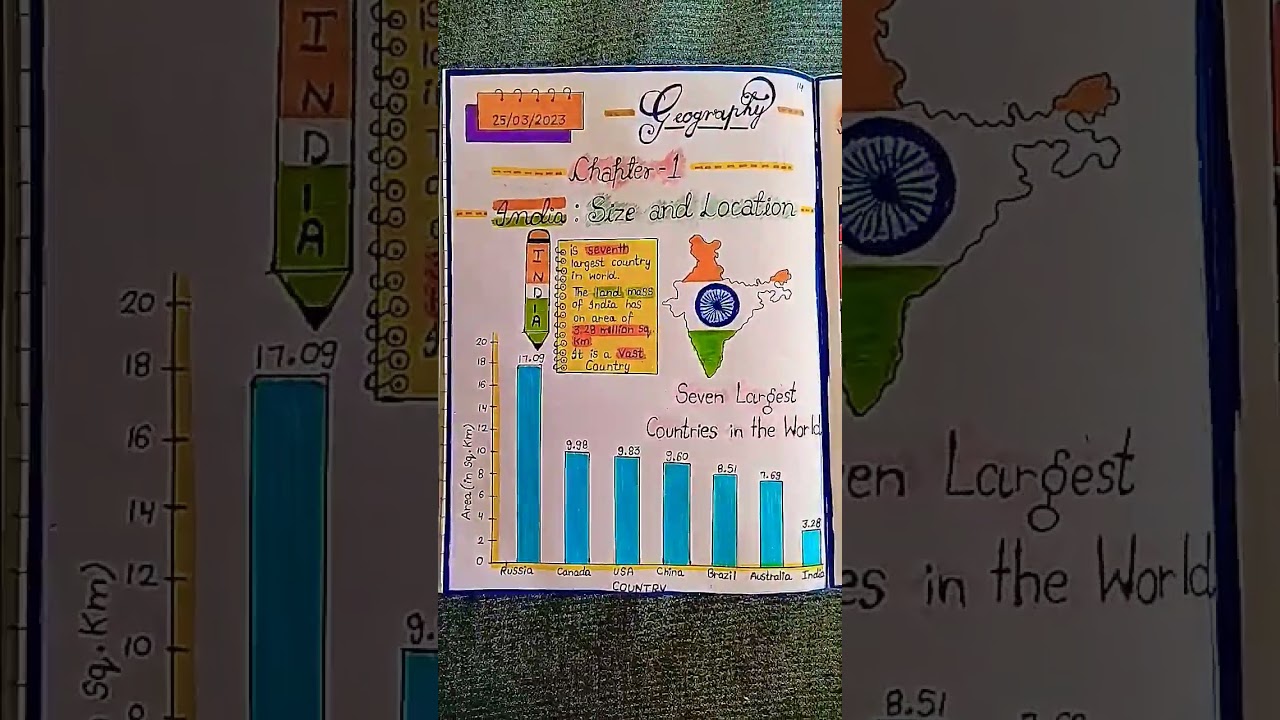 14
25/03/2023
Geography
Chapter-1
India : Size and Location
INDIA
is seventh
largest country
in world.
The land mass
of India has
an area of
3.28 million Sq.
Km
It is a Vast
Country
Seven Largest
Countries in the World
Area (in Sq. Km)
20
18
16
14
12
10
8
6
4
2
0
17.09
9.98
9.83
9.60
8.51
7.69
3.28
Russia
Canada
USA
China
Brazil
Australia
India
COUNTRY
INDIA
20
18
16
14
12
10
17.09
9.
Sq. Km)
en Largest
es in the World
8.51